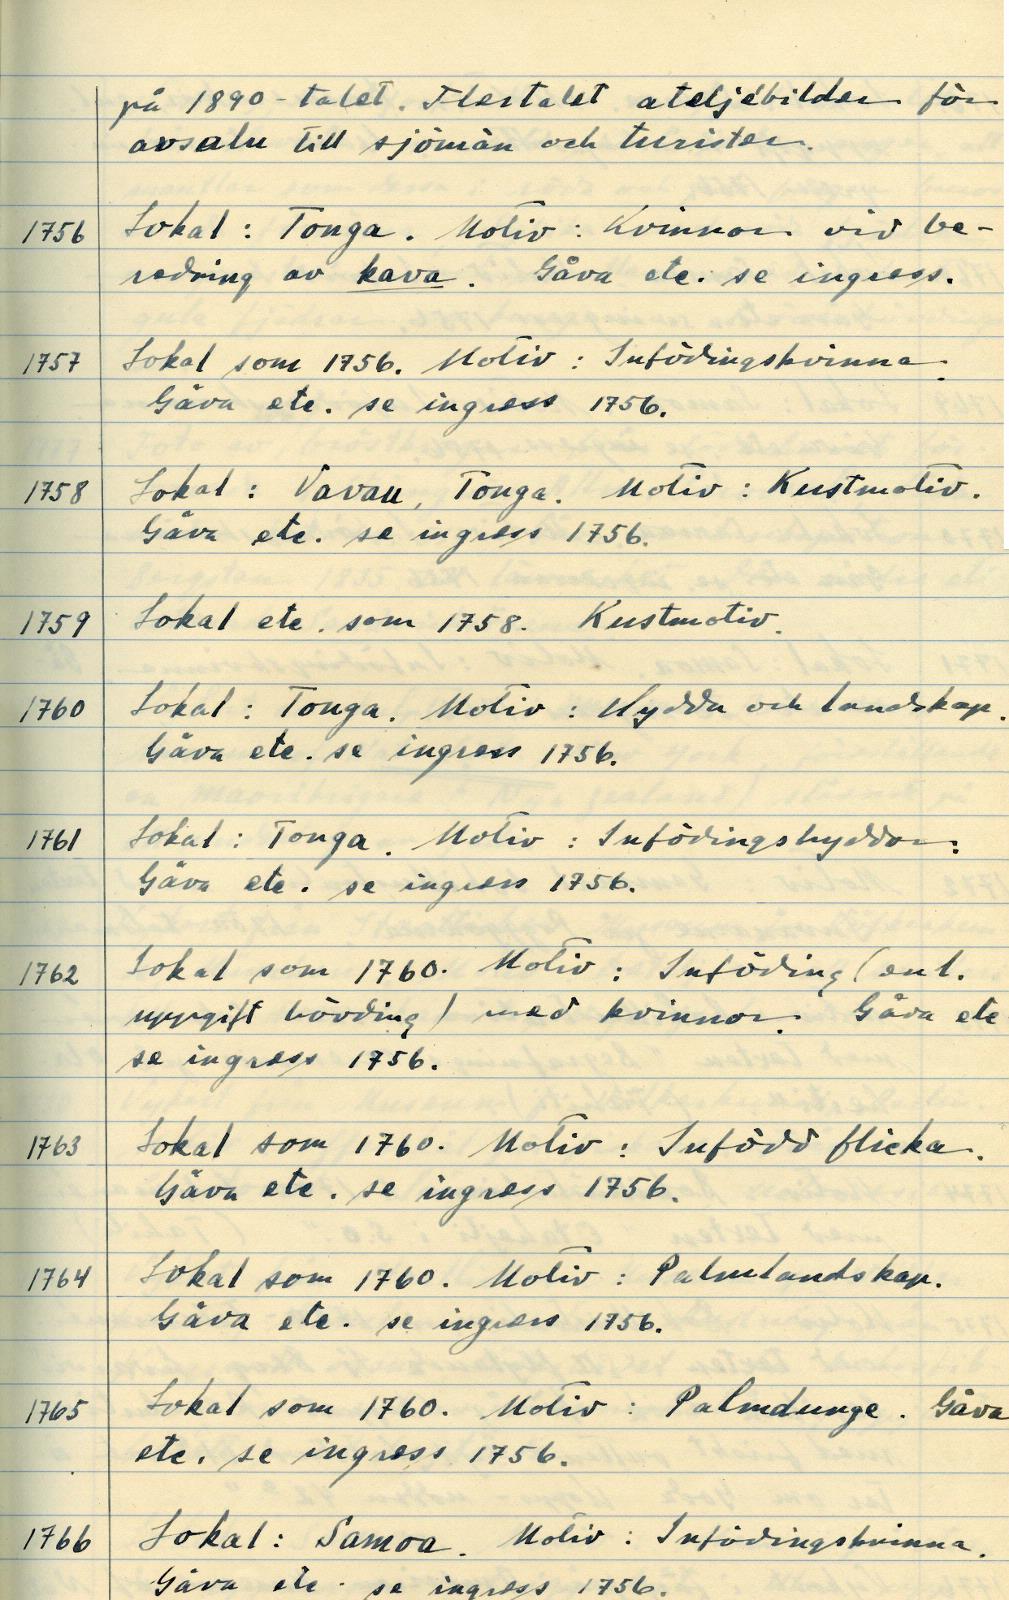 på 1890-talet. Flertalet ateljébilder för
avsalu till sjömän och turister.
1756 Lokal: Tonga. Motiv: Kvinnor vid be-
redning av kava. Gåva etc. se ingress.
1757 Lokal som 1756. Motiv: Infödingskvinna.
Gåva etc. se ingress 1756.
1758 Lokal: Vavau, Tonga. Motiv: Kustmotiv.
Gåva etc. se ingress 1756.
1759 Lokal etc. som 1758. Kustmotiv.
1760 Lokal: Tonga. Motiv: Hydda och landskap.
Gåva etc. se ingress 1756.
1761 Lokal: Tonga. Motiv: Infödingshyddor.
Gåva etc. se ingress 1756.
1762 Lokal som 1760. Motiv: Inföding (enl.
uppgift hövding) med kvinnor. Gåva etc
se ingress 1756.
1763 Lokal som 1760. Motiv: Infödd flicka.
Gåva etc. se ingress 1756.
1764 Lokal som 1760. Motiv: Palmlandskap.
Gåva etc. se ingress 1756.
1765 Lokal som 1760. Motiv: Palmdunge. Gåva
etc. se ingress 1756.
1766 Lokal: Samoa. Motiv: Infödingskvinna.
Gåva etc. se ingress 1756.